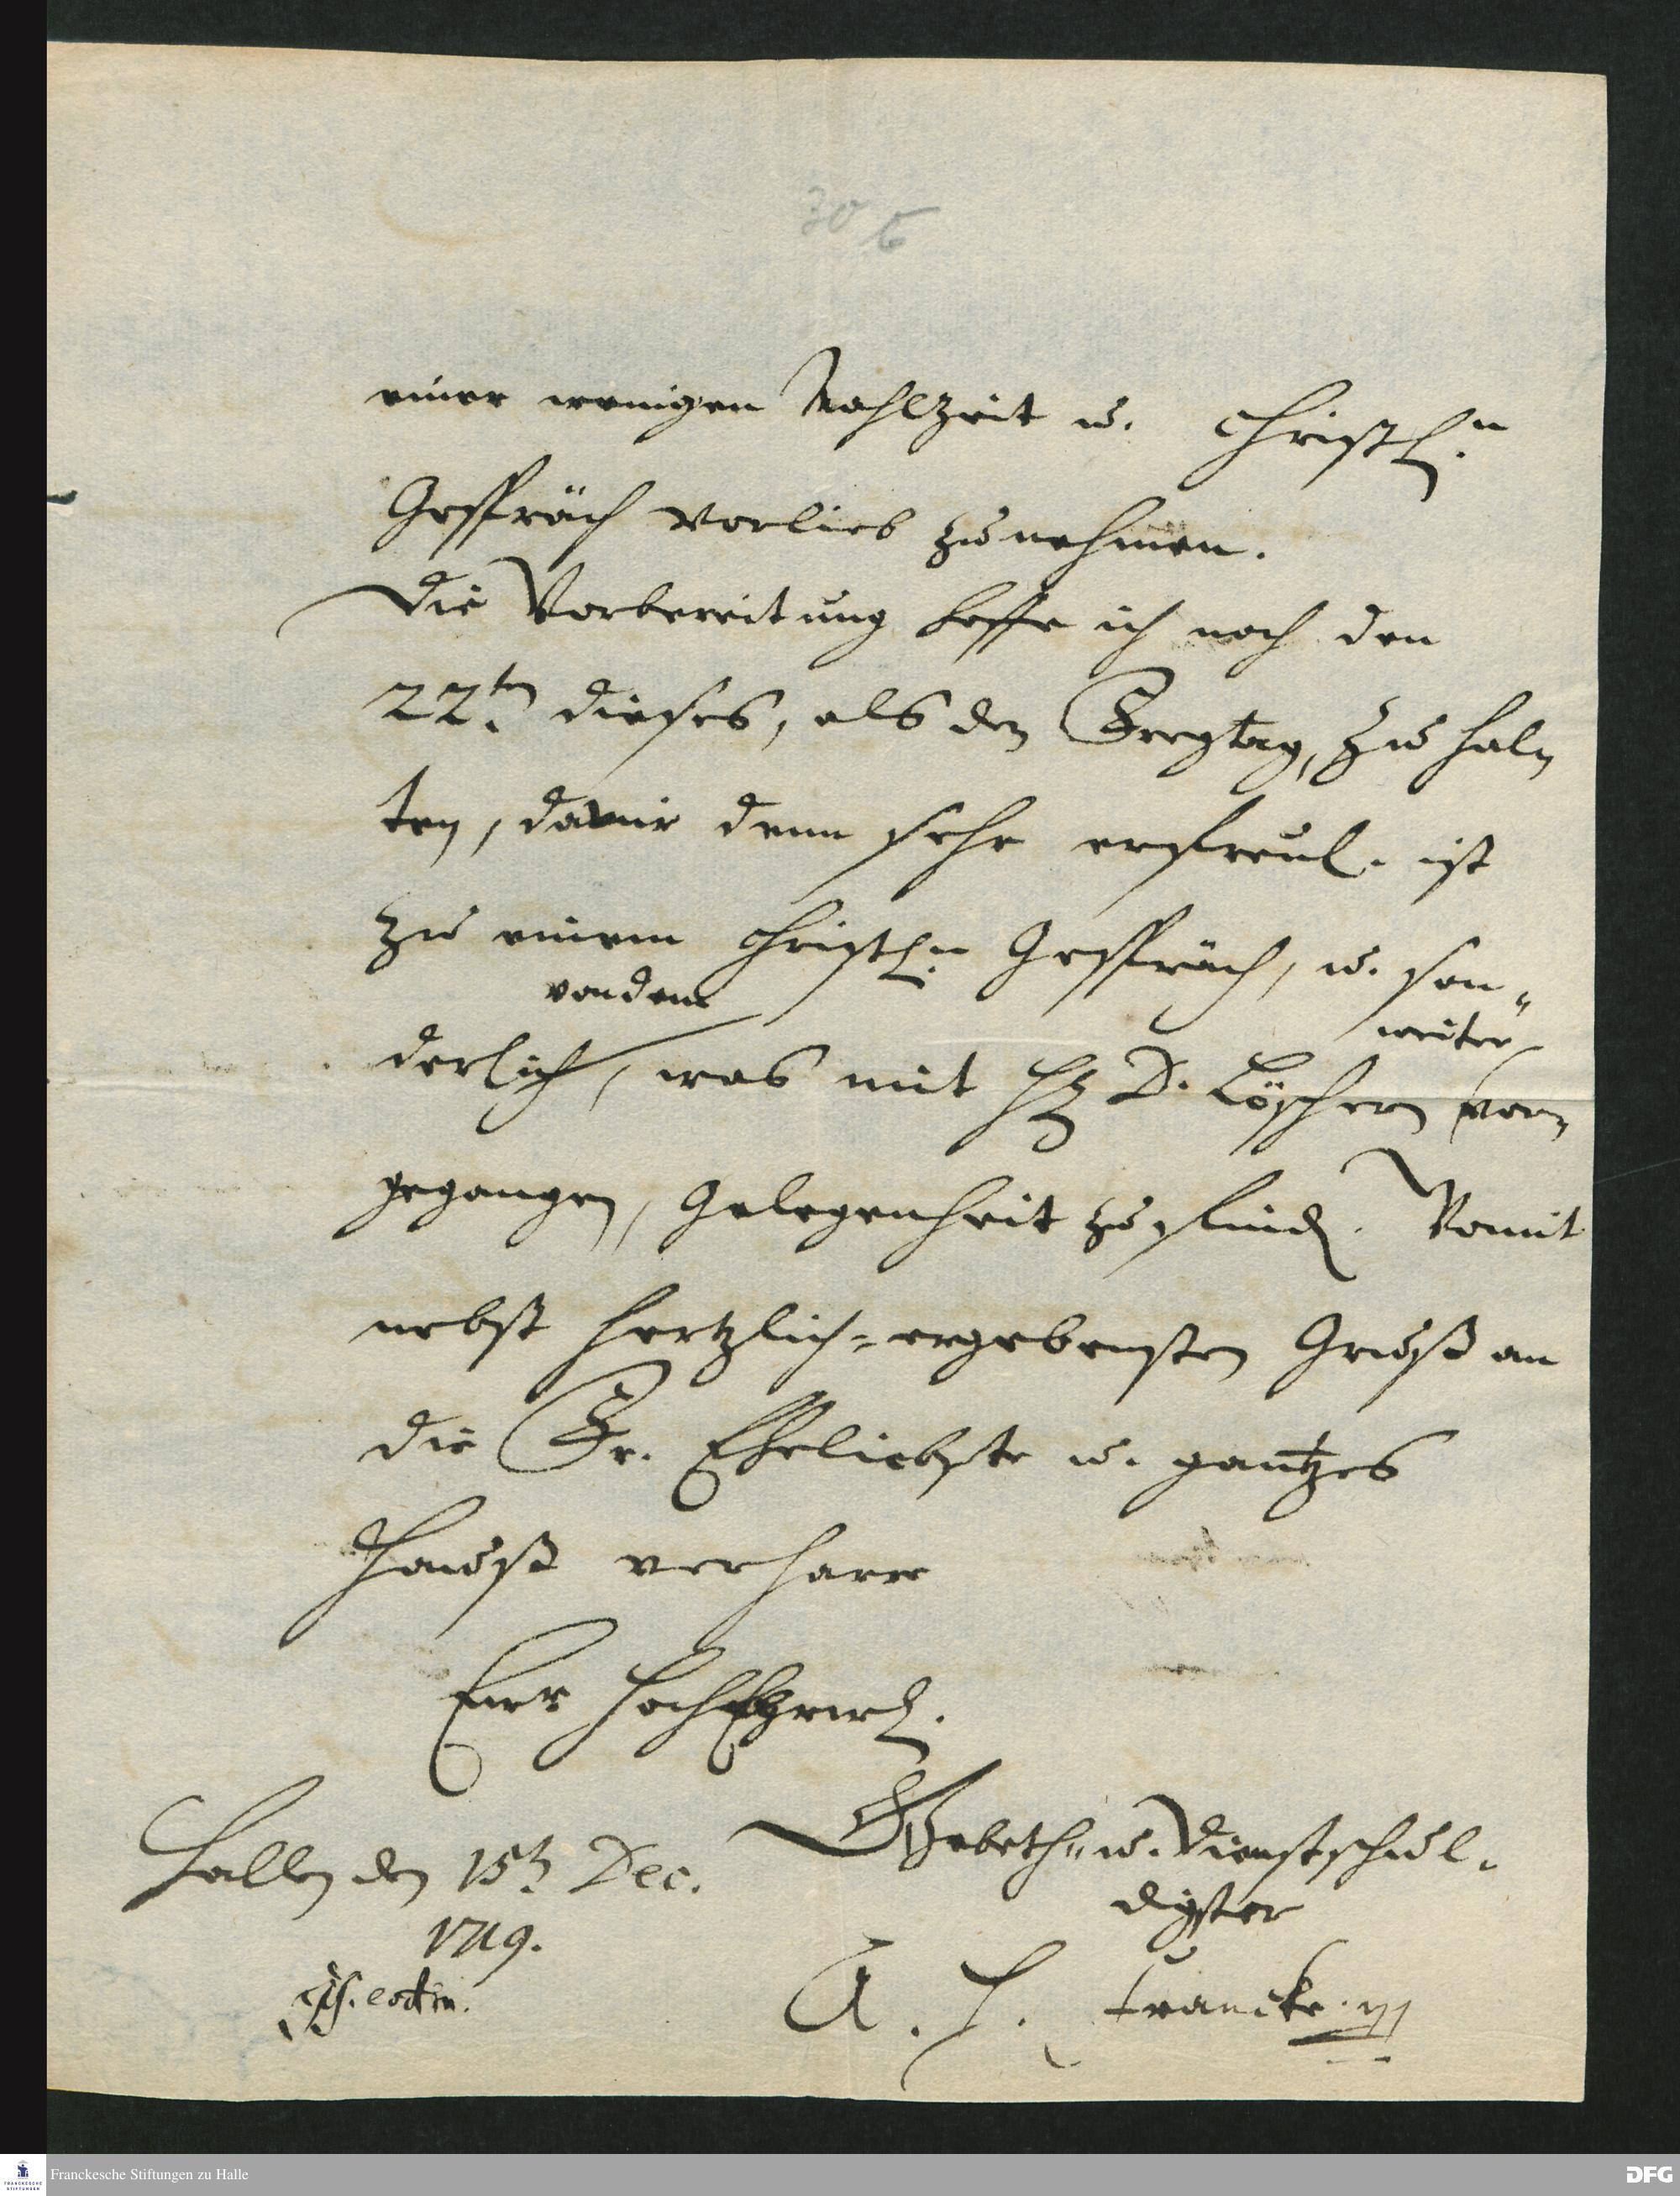 30 6
einer wenigen Mahlzeit u. christl.n
Gespräch vorlieb zu nehmen.
Die Vorbereitung hoffe ich noch den
22.ten dieses, als den Freytag, zu hal-
ten, da mir denn sehr erfreul. ist
zu einem christl.n Gespräch, u. son-
von dem
weiter
derlich, was mit H. D. Löschern vor-
gegangen, Gelegenheit zu find. Womit
nebst hertzlich-ergebensten Gruß an
die Fr. Eheliebste u. gantzes
Hauß verharre
Eurer HochEhrwd.
Hallen den 15.t Dec.
1719.
Gebeth- u. Dienstschul-
digster
A. H. Francke.
Franckesche Stiftungen zu Halle
DFG